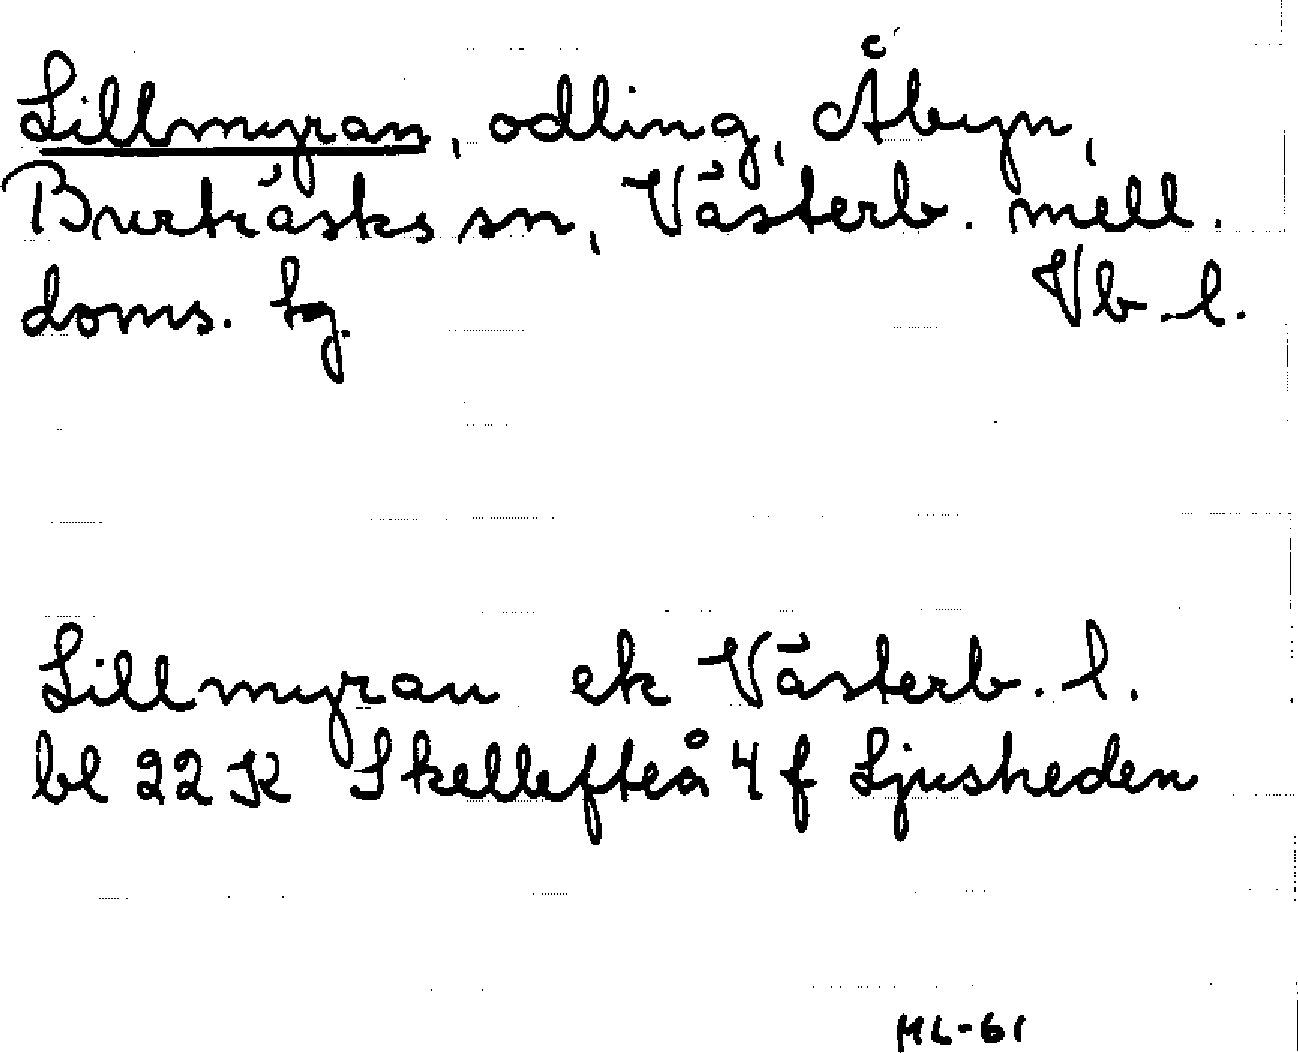 Lillmyran, odling, Åbyn,
Burträsks sn, Västerb. mell.
doms. tg. Vb. l.
Lillmyran ek Västerb. l.
bl 22 K Skellefteå 4 f Ljusheden
ML-61